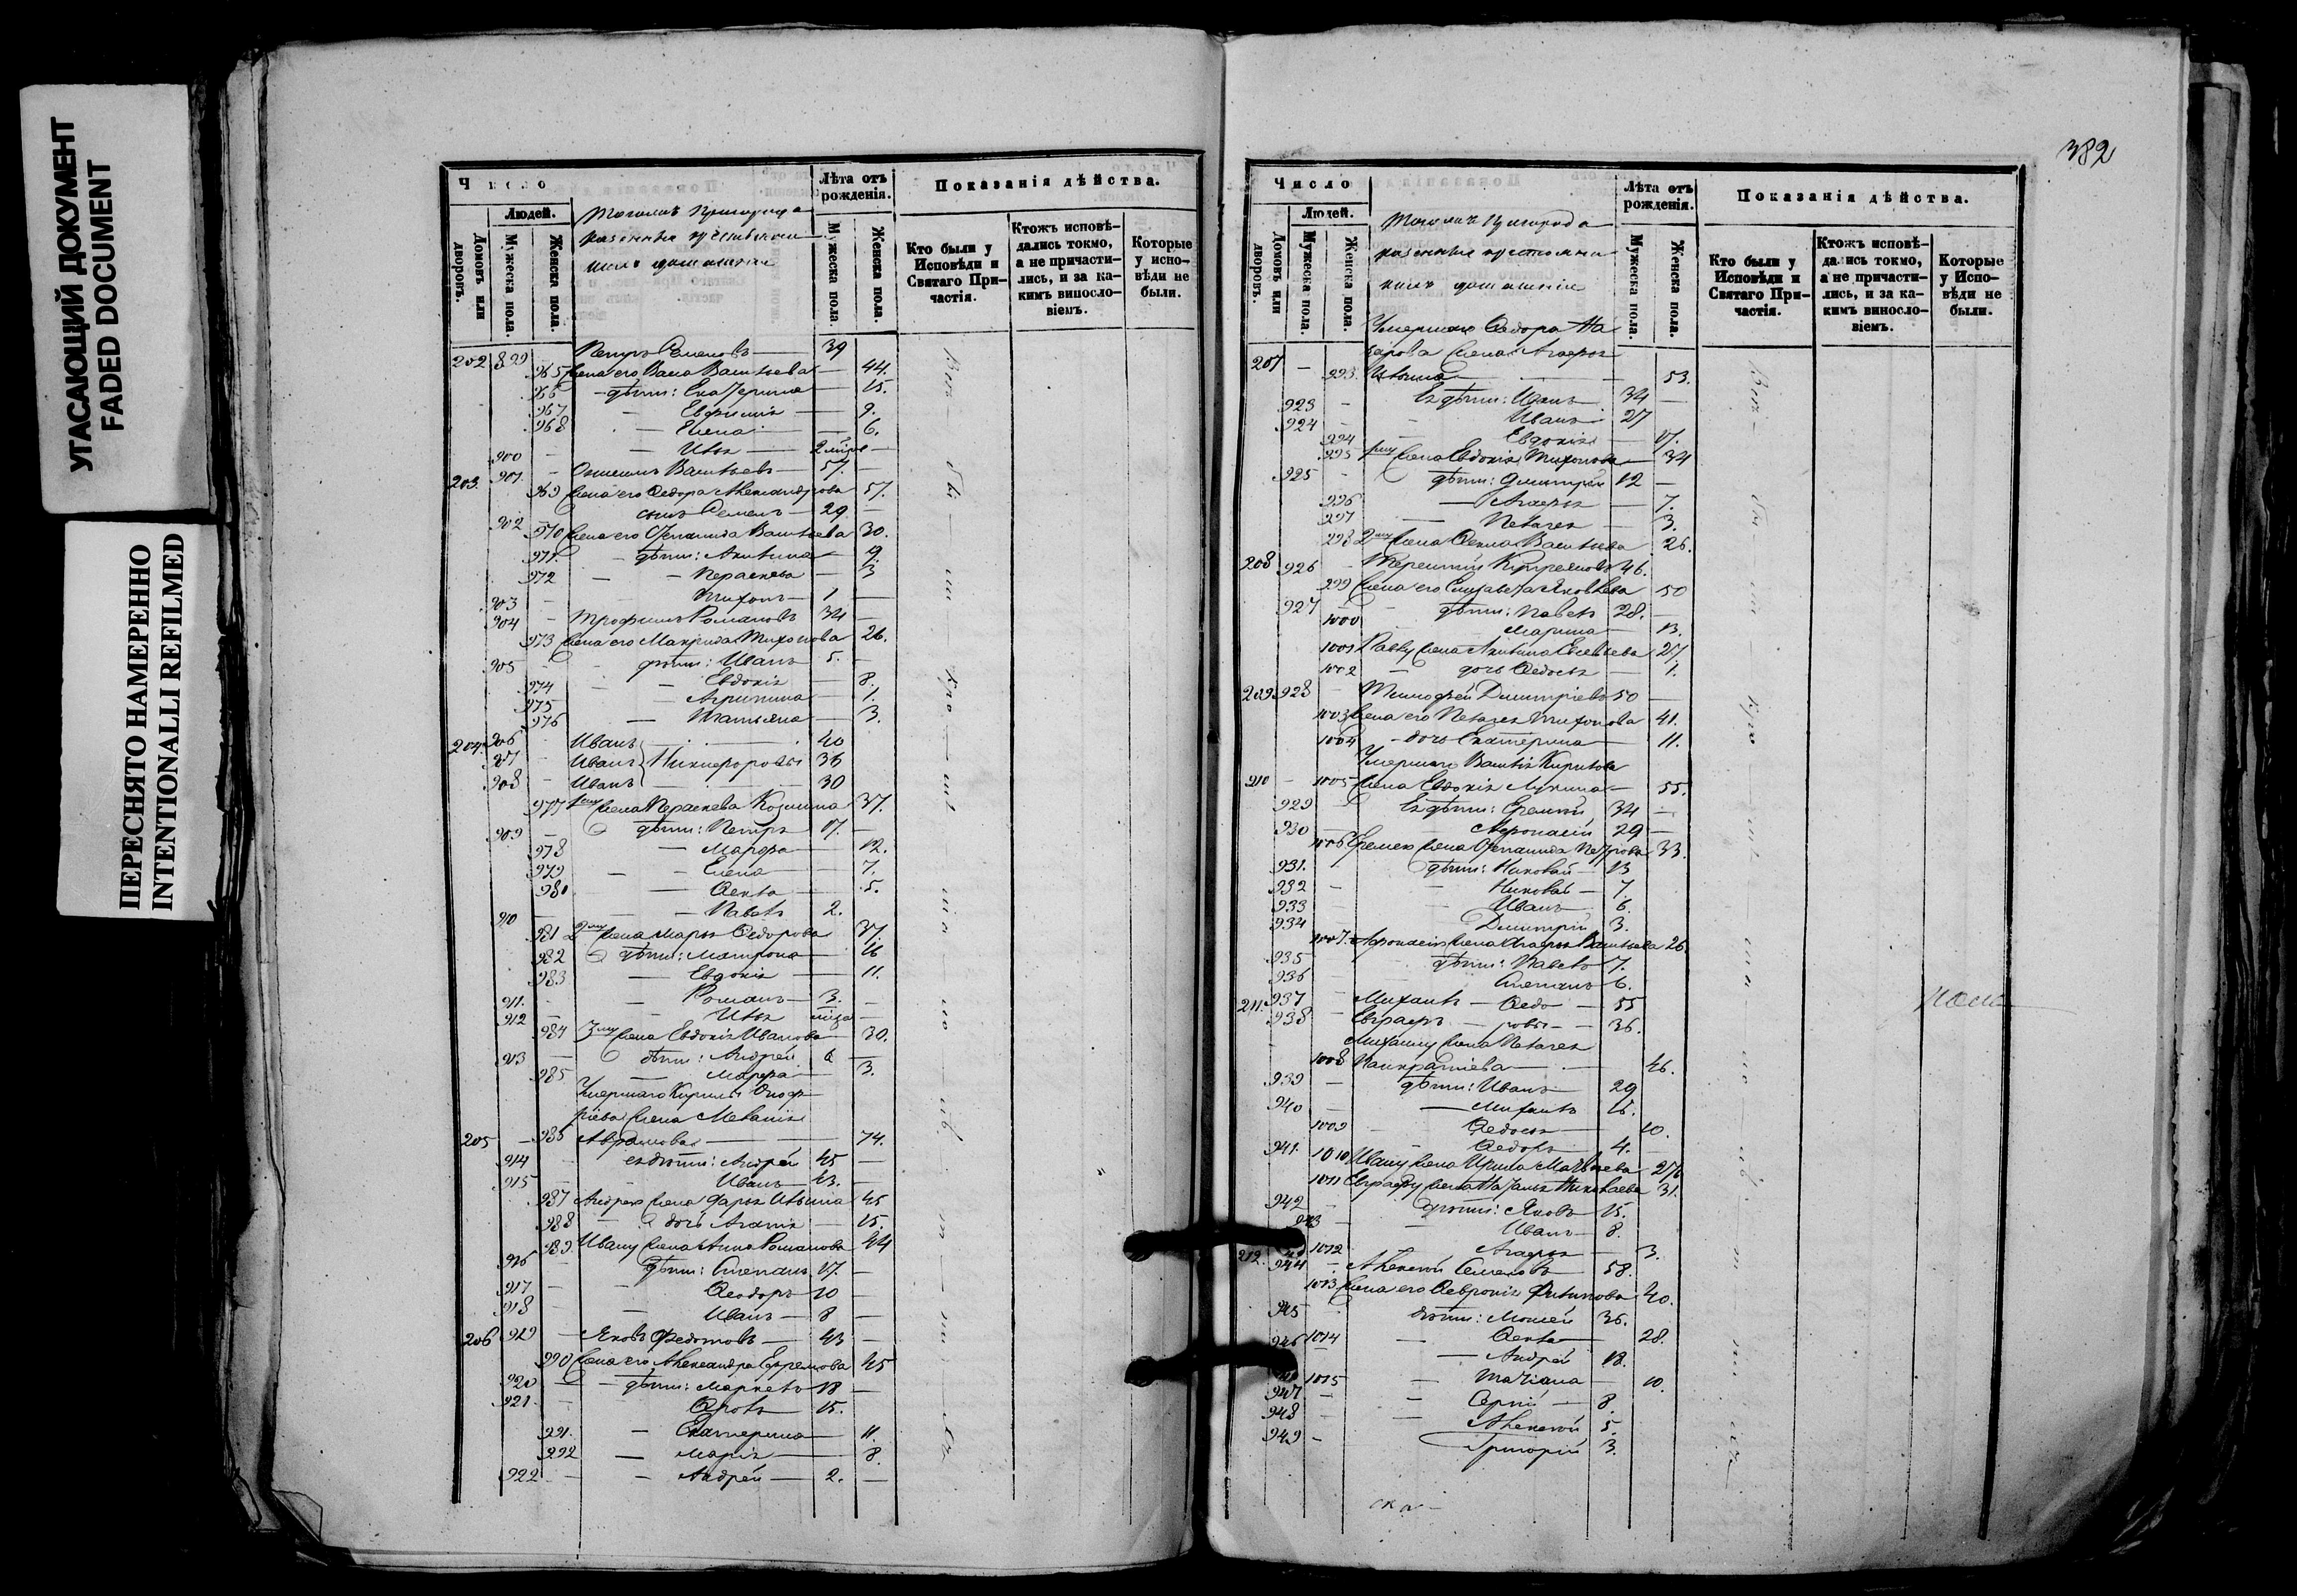 УГАСАЮЩИЙ ДОКУМЕНТ
FADED DOCUMENT
ПЕРЕСНЯТО НАМЕРЕННО
INTENTIONALLI REFILMED
Число
Людей.
Домовъ или дворовъ.
Мужеска пола.
Женска пола.
Лѣта отъ рожденія.
Мужеска пола.
Женска пола.
Показанія дѣйства.
Кто были у Исповѣди и Святаго Причастія.
Ктожъ исповѣдались токмо, а не причастились, и за какимъ винословіемъ.
Которые у исповѣди не были.
202 899 Петръ Семеновъ 39
965 Жена его Васса Васильева 44.
966 дѣти: Екатерина 15.
967 Евфимія 9.
968 Елена 6.
900 Илья
203. 901. Онисимъ Васильевъ 57.
969 Жена его Ѳедора Александрова 57.
902 сынъ Семенъ 29
970 Жена его Степанида Васильева 30.
971. дѣти: Акилина 9.
972 Параскева 3
903 Тихонъ 1
904 Трофимъ Романовъ 34
973 Жена его Макрида Тихонова 26.
905 дѣти: Иванъ 5.
974 Евдокія 8.
975 Агрипина 1.
976 Татьяна 3.
204. 906 Иванъ 40
907 Иванъ Никифоровы 36
908 Иванъ 30
977 1му Жена Параскева Козмина 37.
909 дѣти: Петръ 17.
978 Марфа 12.
979 Елена 7.
980 Ѳекла 5.
910 Павелъ 2.
981 2му Жена Марья Ѳедорова 37
982 дѣти: Матрона 16
983 Евдокія 11.
911. Романъ 3.
912 Илья
984 3му Жена Евдокія Иванова 30.
913 дѣти: Андрей 6
985 Марфа 3.
Умершаго Кирилы Онофріева Жена Меланія
205 986 Аврамова 74.
914 ея дѣти: Андрей 45
915 Иванъ 43.
987 Андрея Жена Дарья Ильина 45
988 дочь Агапія 15.
989. Ивану Жена Анна Романова 44
916 дѣти: Степанъ 17.
917 Ѳеодоръ 10
918 Иванъ 8
206 919 Яковъ Федотовъ 43
990 Жена его Александра Ефремова 45
920 дѣти: Маркелъ 18
921. Фролъ 15.
991. Екатерина 11.
992 Марія 8.
922 Андрей 2.
382
Число
Людей.
Домовъ или дворовъ.
Мужеска пола.
Женска пола.
Лѣта отъ рожденія.
Мужеска пола.
Женска пола.
Показанія дѣйства.
Кто были у Исповѣди и Святаго Причастія.
Ктожъ исповѣдались токмо, а не причастились, и за какимъ винословіемъ.
Которые у Исповѣди не были.
Умершаго Ѳедора Назарова Жена Агафья
207 993. Ильина 53.
923 Ея дѣти: Иванъ 34
924 Иванъ 27
994 Евдокія 17.
995 1му Жена Евдокія Тихонова 34
925 дѣти: Димитрій 12
996 Агафья 7.
997 Пелагея 3.
998 2му Жена Ѳекла Васильева 26.
208 926 Терентій Купреяновъ 46.
999 Жена его Елизавета Яковлева 50
927 дѣти: Павелъ 28.
1000 Марина 13.
1001 Павлу Жена Акилина Евсевьева 27
1002 дочь Ѳедосья 1.
209. 928 Тимофей Димитріевъ 50
1003 Жена его Пелагея Тихонова 41.
1004 дочь Екатерина 11.
Умершаго Василія Кирилова
210 1005 Жена Евдокія Лукина 55.
929 Ея дѣти: Еремей 34
930 Афонасій 29
1006 Еремею Жена Степанида Петрова 33.
931. дѣти: Николай 13
932 Николай 7
933 Иванъ 6.
934 Димитрій 3.
1007. Афонасія Жена Агафья Васильева 26.
935 дѣти: Павелъ 7.
936 Степанъ 6.
211. 937 Михаилъ Ѳедо 55
938 Евграфъ ровы 36.
Михаилу Жена Пелагея
1008 Панкратіева 46.
939 дѣти: Иванъ 29
940 Михаилъ 16.
1009 Ѳедосья 10.
941. Ѳедоръ 4.
1010 Ивану Жена Ирина Матвѣева 27
1011 Евграфу Жена Наталья Николаева 31.
942 дѣти: Яковъ 15.
943 Иванъ 8.
1012 Агафья 3.
212. 944 Алексей Семеновъ 58.
1013 Жена его Ѳевронія Филипова 40.
945 дѣти: Моисей 36.
1014 Ѳекла 28.
946 Андрей 18.
1015 Татіана 10.
947 Сергій 8.
948 Алексей 5.
949 Григорій 3.